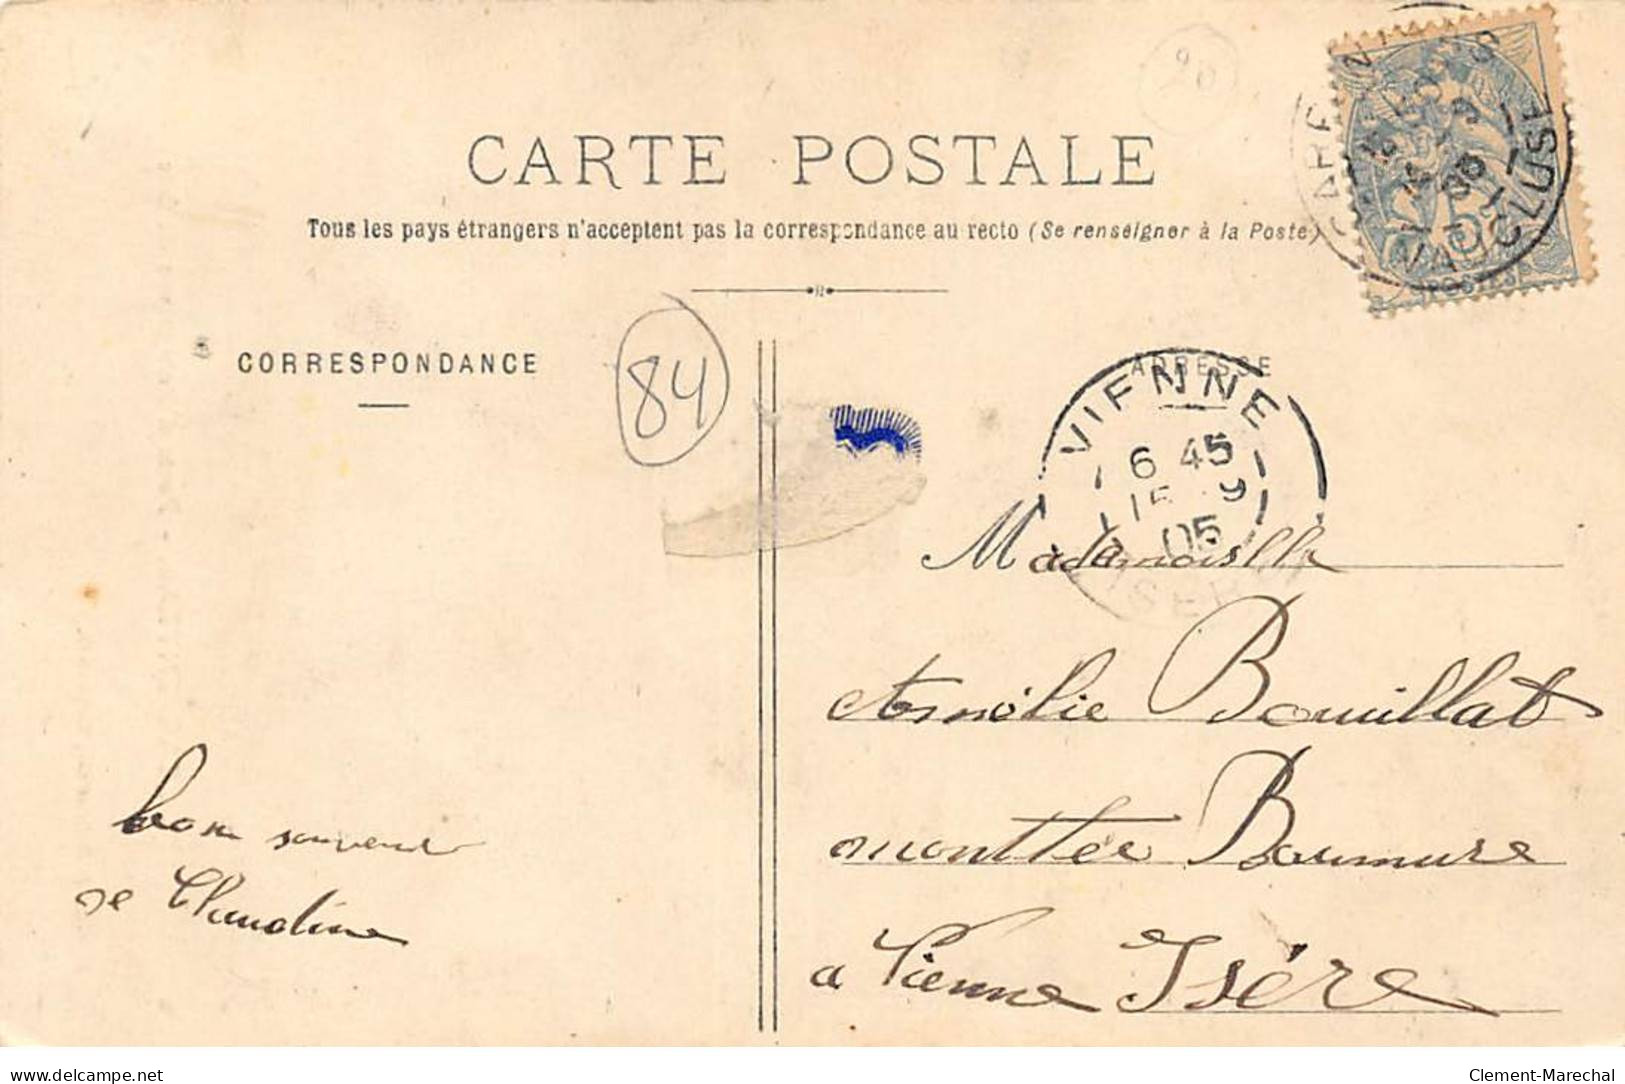 CARTE POSTALE
Tous les pays étrangers n'acceptent pas la correspondance au recto (Se renseigner à la Poste)
CORRESPONDANCE
ADRESSE
84
20
VAUCLUSE
5
VIENNE
6 45
15 9
05
ISERE
Mademoiselle
Amélie Bouillat
monttée Bounmure
a Vienne Isère
bon souvenir
de Claudine
delcampe.net
Clement-Marechal